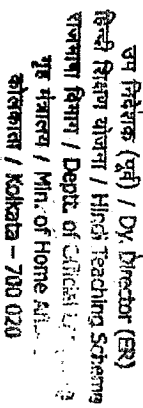 उप निदेशक (पूर्व) / Dy. Director (ER)
हिन्दी शिक्षण योजना / Hindi Teaching Scheme
राजभाषा विभाग / Deptt. of
गृह मंत्रालय / Min. of Home
कोलकाता / Kolkata - 700 020